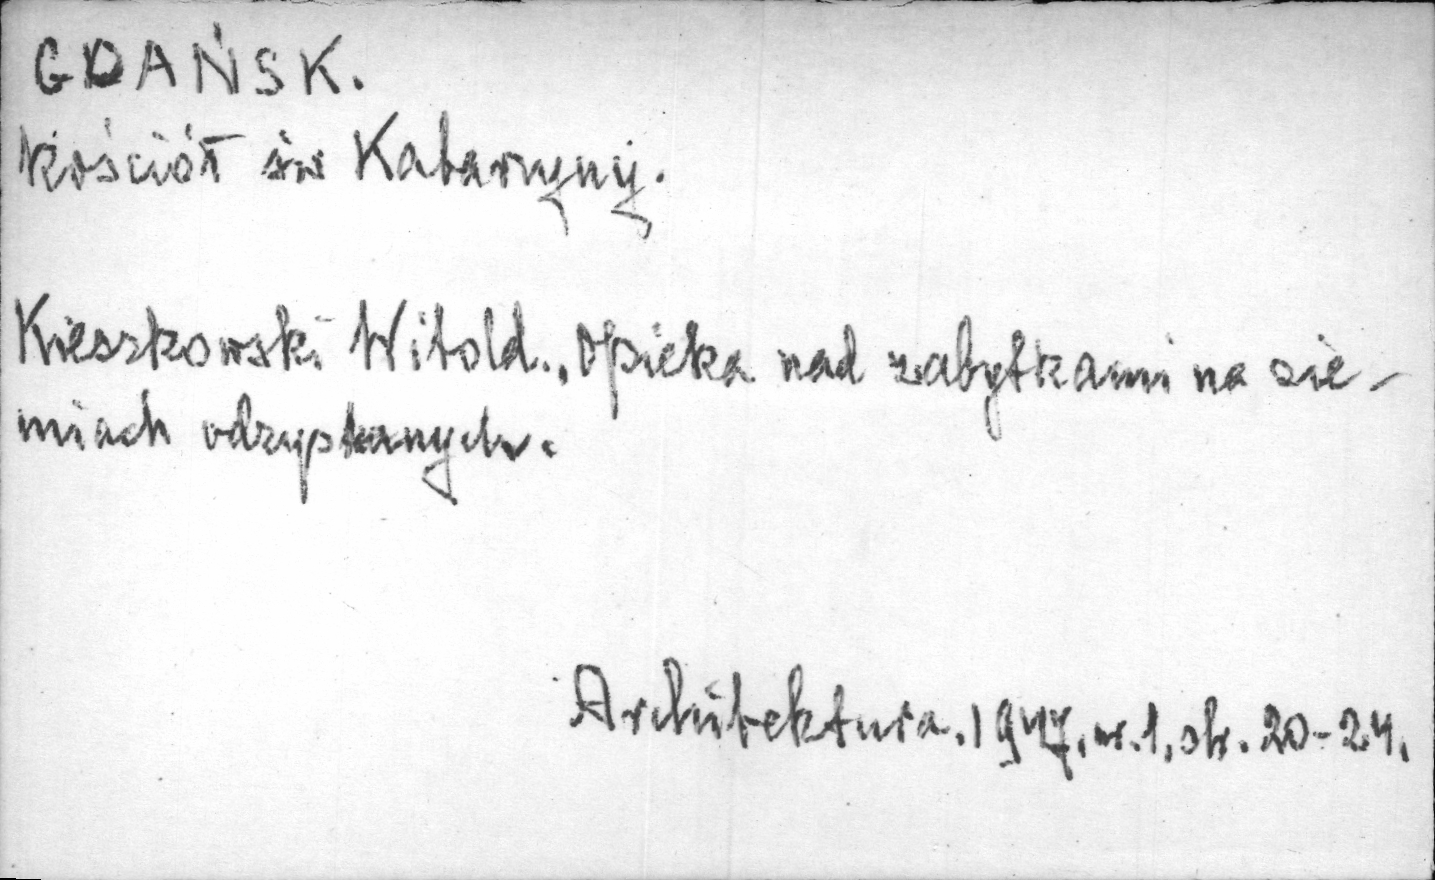 GDAŃSK.
Kościół św Katarzyny.
Kieszkowski Witold., Opieka nad zabytkami na zie-
miach odzyskanych.
Architektura. 1947, nr. 1, str. 20-24.